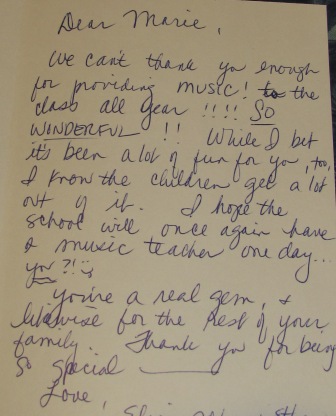 Dear Marie,
We can't thank you enough
for providing music! to the
class all year !!!! SO
WONDERFUL !! While I bet
it's been a lot of fun for you, too,
I know the children get a lot
out of it. I hope the
school will once again have
a music teacher one day...
you?!
You're a real gem, &
likewise for the rest of your
family. Thank you for being
so special
Love,